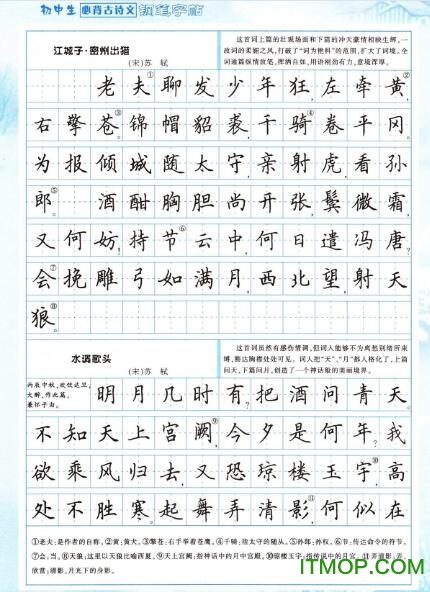 初中生必背古诗文钢笔字帖
江城子·密州出猎
(宋)苏 轼
这首词上篇的壮观场面和下篇的冲天豪情相映生辉,一
改词的柔婉之风,打破了“词为艳科”的范围,扩大了词境,全
词通篇纵情放笔,挥洒自如,用语刚劲有力,意境深厚。
老夫①聊发少年狂,左牵黄②,
右擎苍③。锦帽貂裘,千骑④卷平冈。
为报倾城随太守,亲射虎,看孙
郎⑤。酒酣胸胆尚开张,鬓微霜,
又何妨!持节⑥云中,何日遣冯唐?
会⑦挽雕弓如满月,西北望,射天
狼⑧。
水调歌头
(宋)苏 轼
这首词虽然有感伤情调,但词人能够不为离愁别绪所束
缚,豁达胸襟处处可见。词人把“天”、“月”都人格化了,上篇
问天,下篇问月,创造了一个神话般的美丽境界。
丙辰中秋,欢饮达旦,
大醉,作此篇,
兼怀子由。
明月几时有,把酒问青天。
不知天上宫阙⑨,今夕是何年?我
欲乘风归去,又恐琼楼玉宇⑩,高
处不胜寒。起舞弄清影⑪,何似在
①老夫:是作者的自称。②黄:黄犬。③擎苍:右手举着苍鹰。④千骑:指太守的随从。⑤孙郎:孙权。⑥节:传达命令的符节。
⑦会:当。⑧天狼:这里以天狼比喻西夏。⑨天上宫阙:指神话中的月中宫殿。⑩琼楼玉宇:指传说中的月宫。⑪弄清影:弄,
欣赏;清影,月光下的身影。
ITMOP.COM